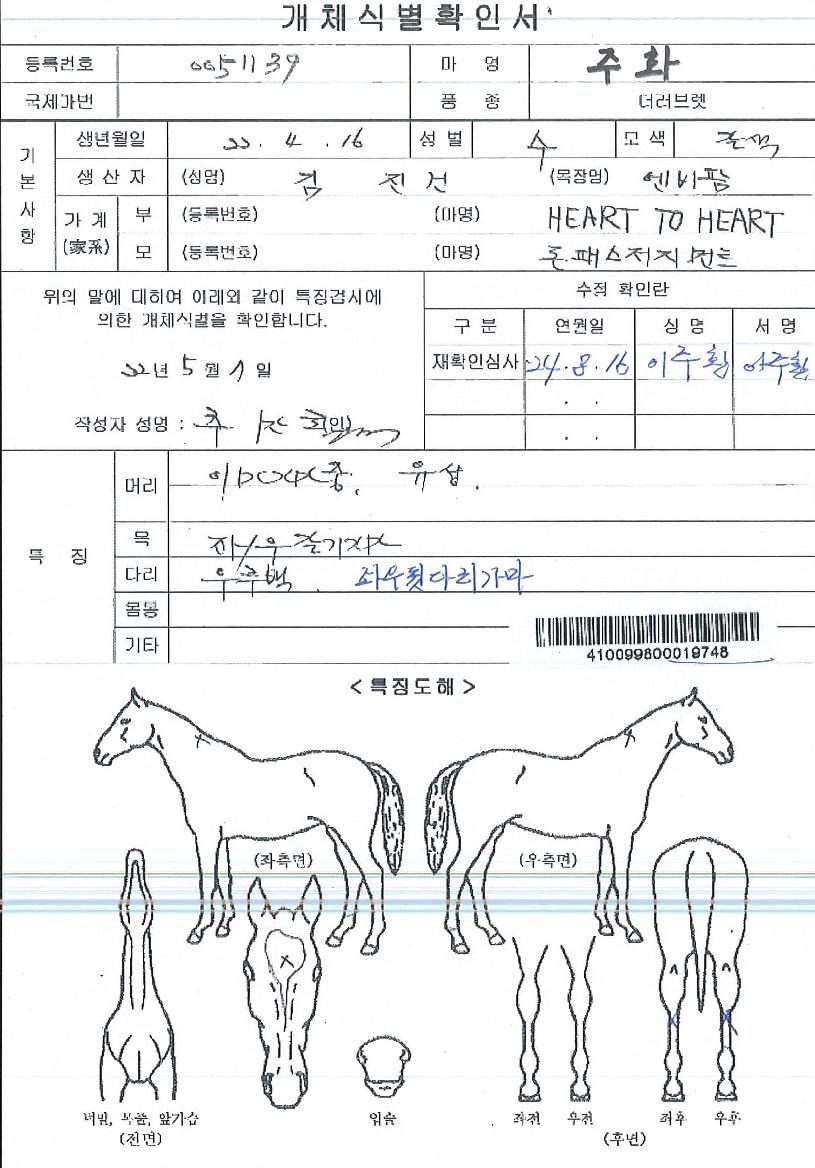 개체식별확인서
등록번호 0051139 마 명 주화
국제마번 품 종 더러브렛
기본사항
생년월일 22. 4. 16 성별 수 모색 갈색
생 산 자 (성명) 김 진 건 (목장명) 엔비팜
가 계 (家系) 부 (등록번호) (마명) HEART TO HEART
모 (등록번호) (마명) 돈패스저지먼트
위의 말에 대하여 아래와 같이 특징검사에
의한 개체식별을 확인합니다.
22년 5월 1일
작성자 성명 : (인)
수정 확인란
구 분 연월일 성 명 서 명
재확인심사 24. 8. 16 이주환 이주환
특 징
머리
목 좌/우 줄기자
다리 우후백 좌우뒷다리가마
몸통
기타
410099800019748
< 특징도해 >
(좌측면) (우측면)
턱밑, 목줄, 앞가슴 입술 좌전 우전 좌후 우후
(전면) (후면)